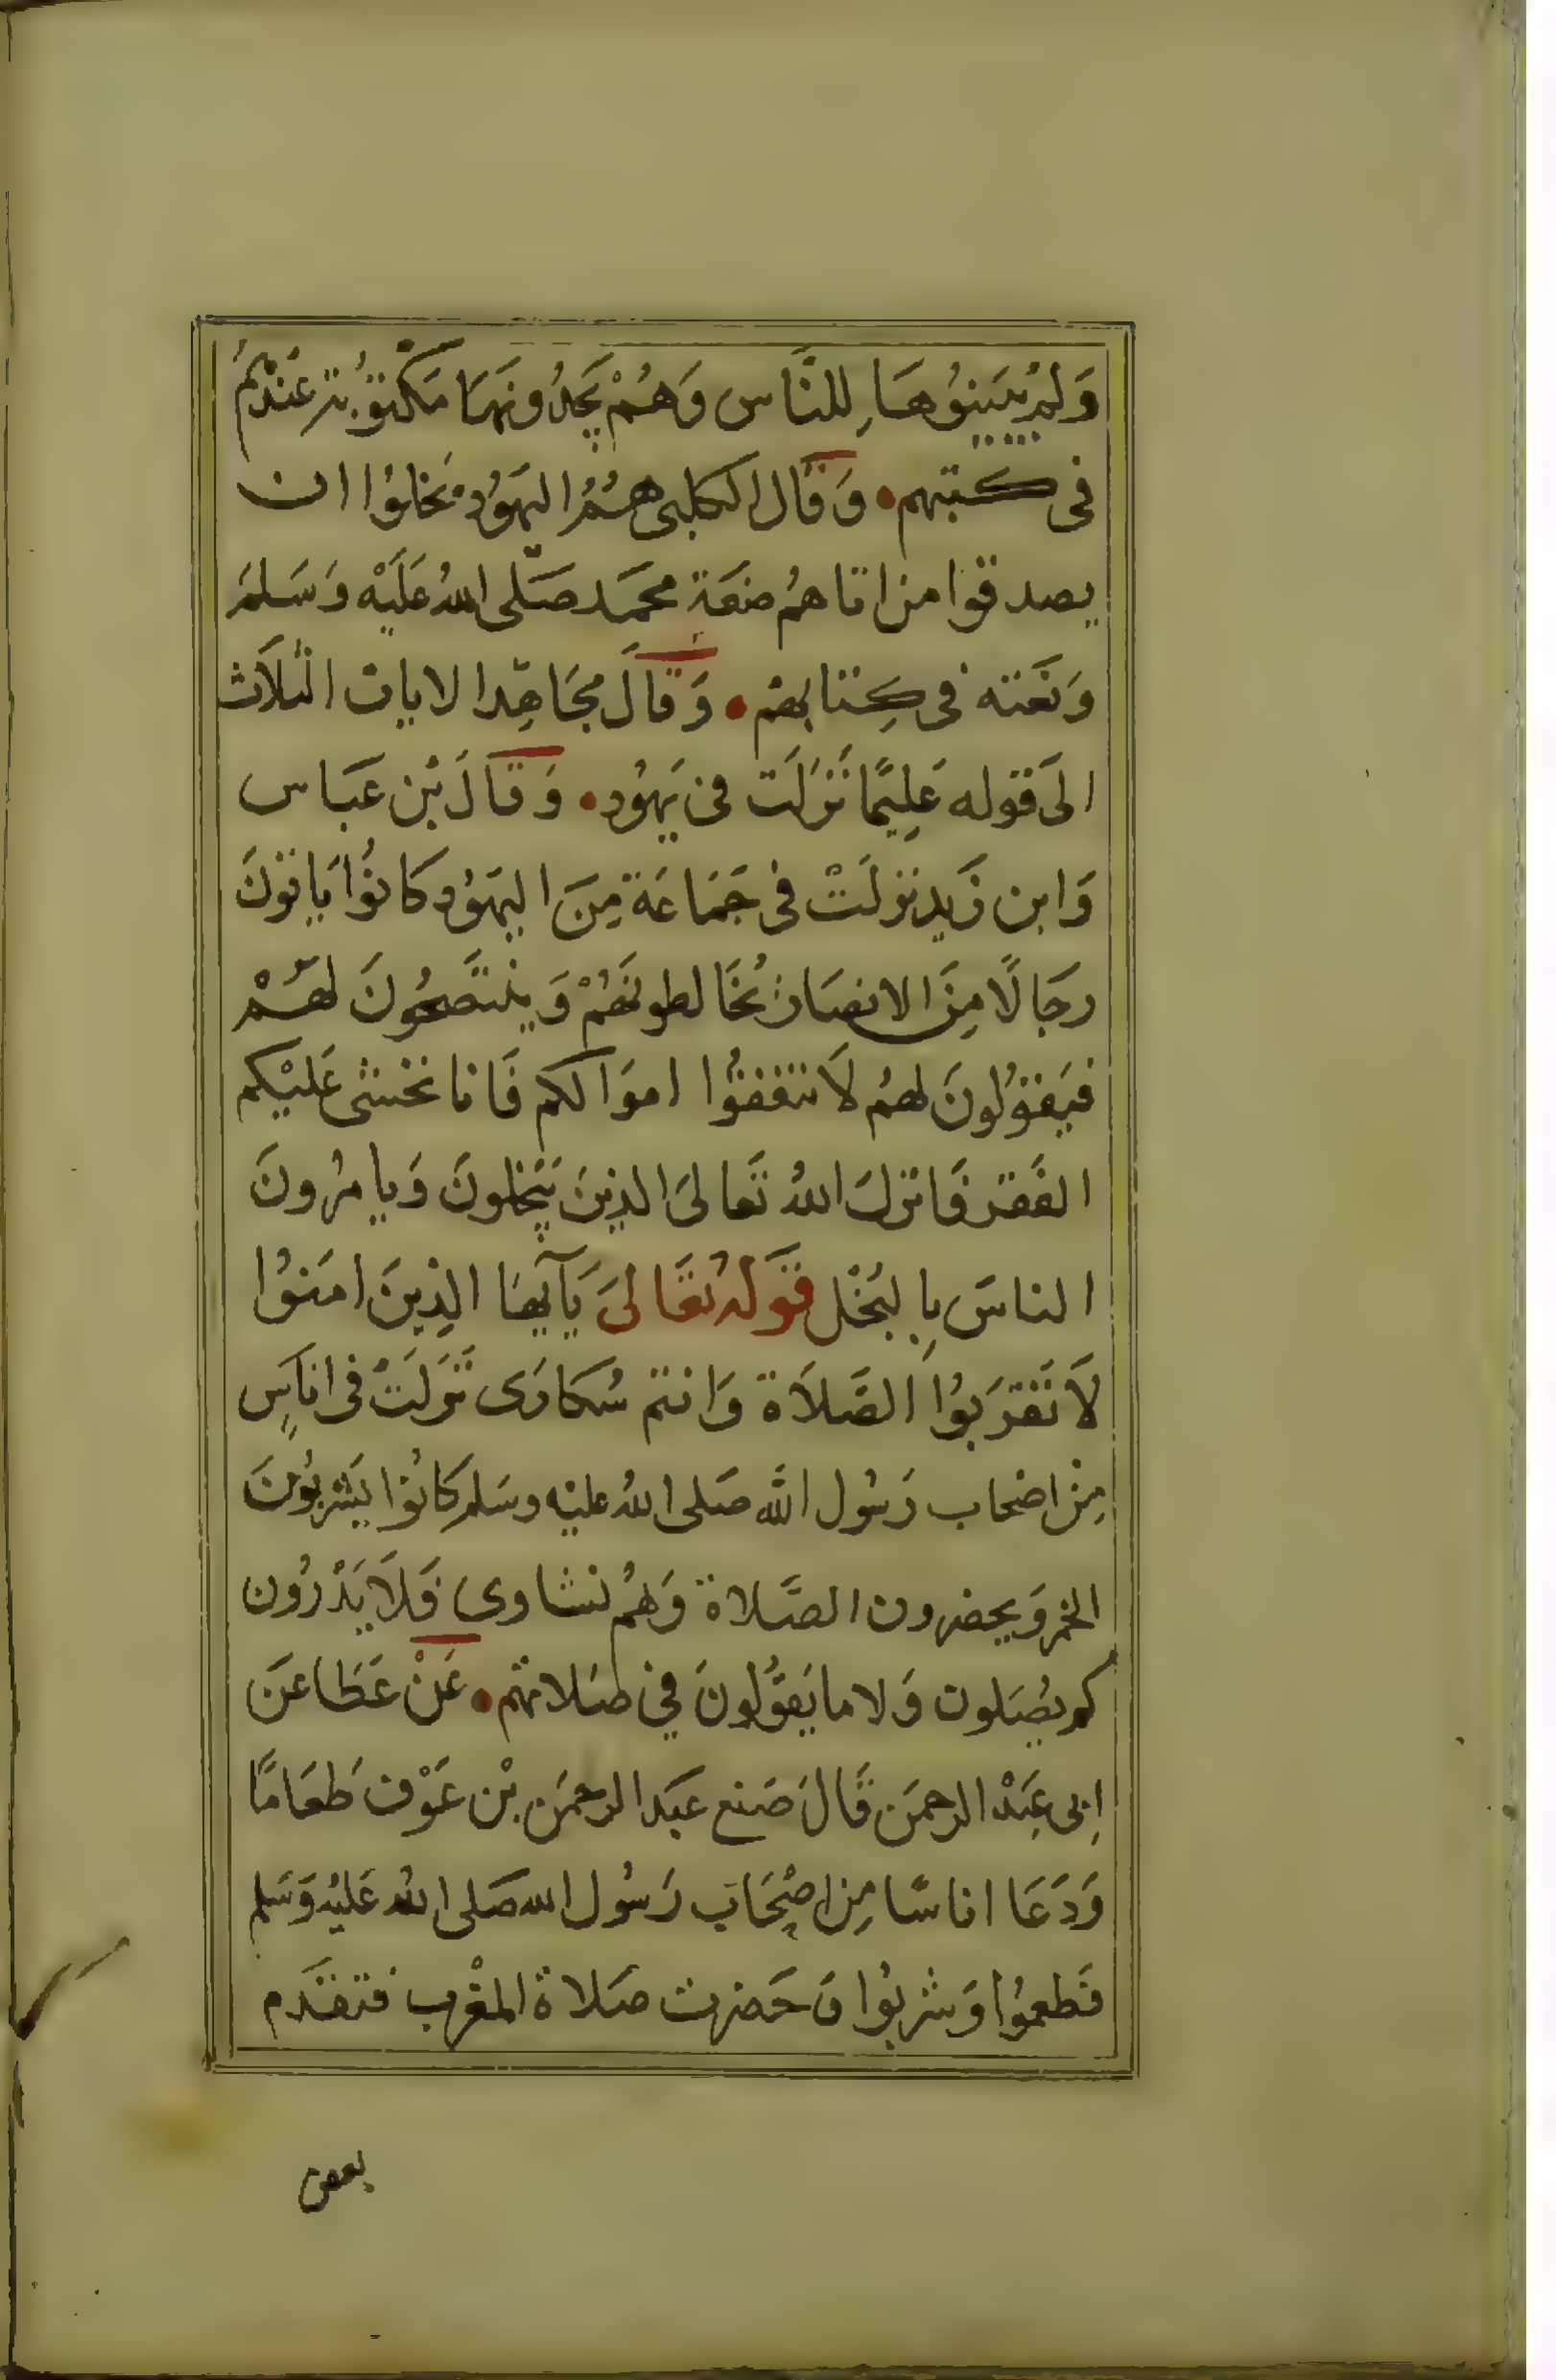 وَلَمْ يُبَيِّنُوُهَا لِلنَّاس وَهُمْ يَجِدُونَهَا مَكتوُبة عَندَهُمُ
فى كتبهم • وَقَال الكلبى هُمُ اليَهوُد بَخلوُا ان
يصدقوا من اتاهمُ صَفَة محمَد صَلى اللهُ عَلَيْه وَسَلمَ
وَنَعَته فى كِتابهمْ • وَقالَ مجَاهِد الايات الثلاَث
الىَ قوله عَلِيمًا نَزلَت فى يَهوُد • وَقَالَ بْن عَبَاس
وَابن زَيد نزلَتْ فى جَمَاعَة مِنَ اليَهوُد كَانوُا يَاتوُنَ
رجَالًا مِنَ الانصَار يُخَالطونَهُمْ وَينتَصحُونَ لهُمْ
فيَقوُلونَ لهمُ لاَ تنفقوُا اموَالكم فَانا نخشى عَليْكم
الفَقر فَانزلَ اللهُ تَعالىَ الذينَ يَبْخلونَ وَيامرُونَ
الناسَ بِالبُخْل قَولهُ تعَالىَ يَآيهَا الذِينَ امَنوُا
لاَ تَقرَبوُا الصَّلاَة وَانتم سُكارَى نَزَلَتْ فى اناسٍ
مِنْ اصْحاب رَسُول الله صَلى اللهُ عليْه وسَلم كَانوُا يَشربوُنَ
الخمر وَيحضرون الصَّلاة وَهُم نشاوى فَلاَ يَدْرُون
كم يصَلون وَلا ما يَقوُلونَ في صَلاتهم • عَنْ عَطَا عَن
اَبى عَبْد الرحمَن قَالَ صَنع عَبَد الرحمَن بْن عَوْف طَعَامًا
وَدَعَا اناسًا مِن اصْحَاب رَسُول الله صَلى اللهُ عَليْه وَسَلم
فَطعموُا وَشربوُا وَحَضرت صَلاة المغْرب فتقدَم
بعض